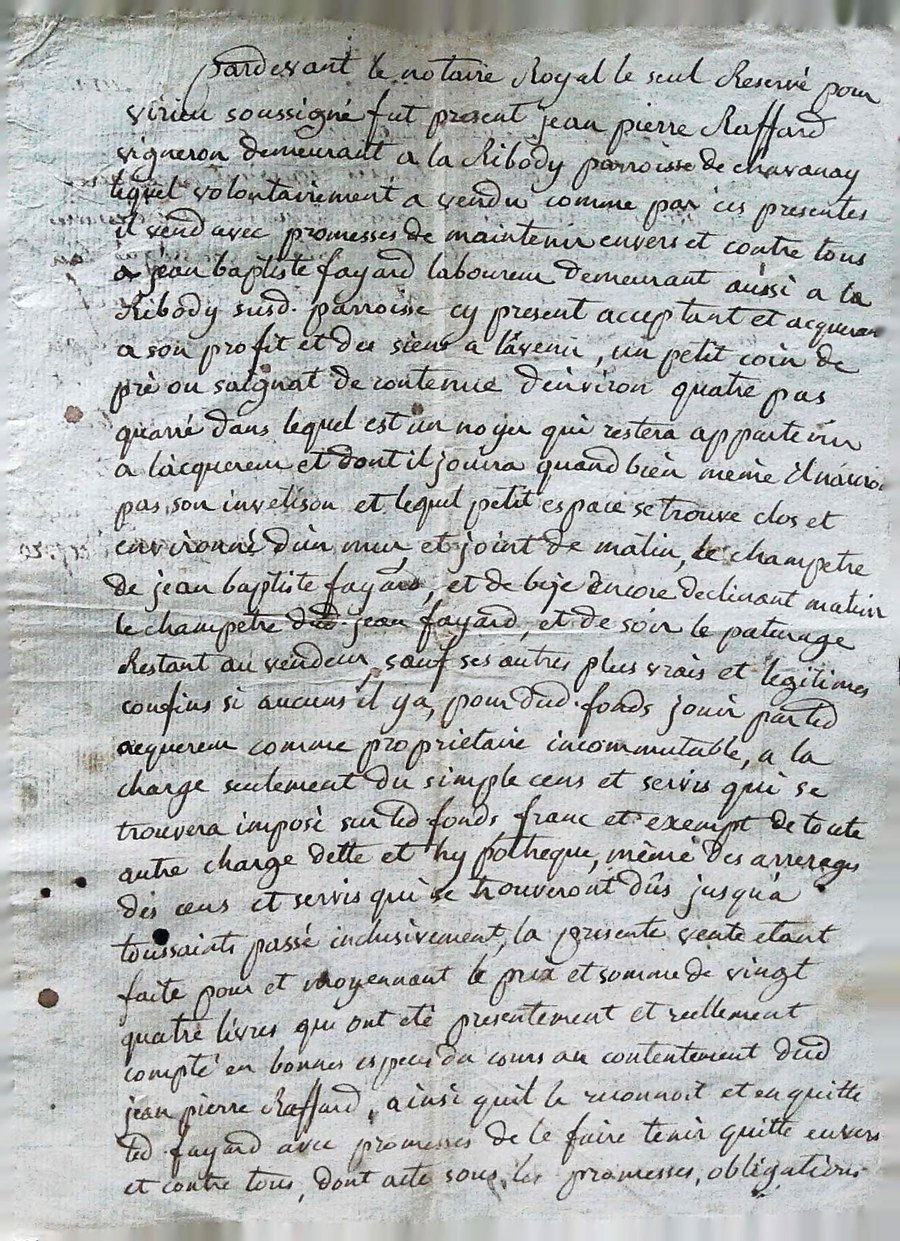 pardevant le notaire Royal le seul Reservé pour
virieu soussigné fut present jean pierre Raffard
vigneron demeurant a la Ribody parroisse de chavanay
lequel volontairement a vendu comme par ces presentes
il vend avec promesses de maintenir envers et contre tous
a jean baptiste fayard laboureur demeurant aussi a la
Ribody susd. parroisse cy present acceptant et acqueran
a son profit et des siens a l'avenir, un petit coin de
pré ou saignat de contenue d'environ quatre pas
quarré dans lequel est un noyer qui restera appartenir
a l'acquereur et dont il jouira quand bien même il n'auroi
pas son invetison et lequel petit espace se trouve clos et
environné d'un mur et joint de matin, le champetre
de jean baptiste fayard, et de bize encore declinant matin
le champetre dud. jean fayard, et de soir le paturage
Restant au vendeur, sauf ses autres plus vrais et legitimes
confins si aucuns il y a, pour dud. fonds jouir par led
acquereur comme proprietaire incommutable, a la
charge seulement du simple cens et servis qui se
trouvera imposé sur led fonds franc et exempt de toute
autre charge dette et hypotheque, même des arrerages
des cens et servis qui se trouveront dûs jusqu'a
toussaints passé inclusivement, la presente vente etant
faite pour et moyennant le prix et somme de vingt
quatre livres qui ont eté presentement et reellement
compté en bonnes especes du cours au contentement dud
jean pierre Raffard, ainsi quil le reconnoit et en quitte
led fayard avec promesses de le faire tenir quitte envers
et contre tous, dont acte sous les promesses, obligations